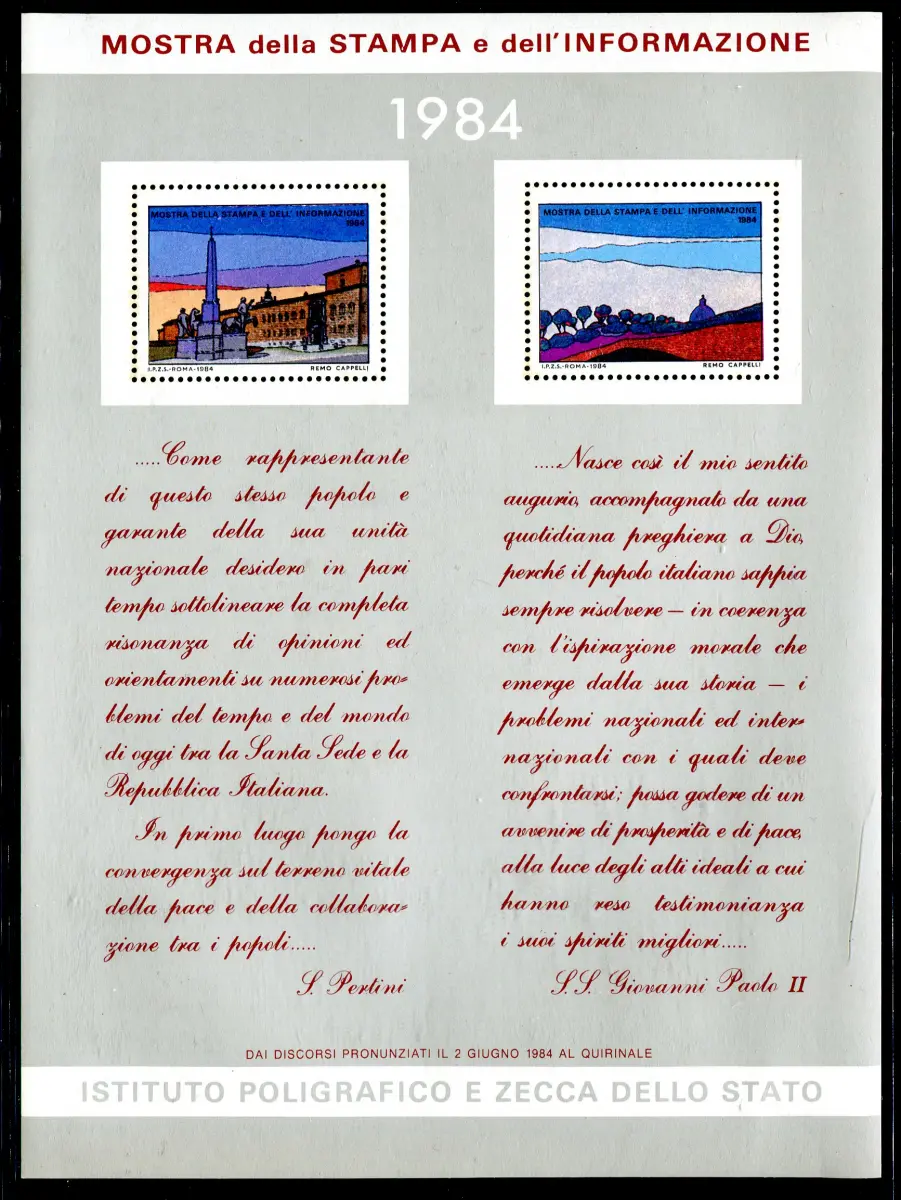 MOSTRA della STAMPA e dell'INFORMAZIONE
1984
MOSTRA DELLA STAMPA E DELL' INFORMAZIONE
1984
I.P.Z.S.-ROMA-1984 REMO CAPPELLI
MOSTRA DELLA STAMPA E DELL' INFORMAZIONE
1984
I.P.Z.S.-ROMA-1984 REMO CAPPELLI
.....Come rappresentante
di questo stesso popolo e
garante della sua unità
nazionale desidero in pari
tempo sottolineare la completa
risonanza di opinioni ed
orientamenti su numerosi pro=
blemi del tempo e del mondo
di oggi tra la Santa Sede e la
Repubblica Italiana.
In primo luogo pongo la
convergenza sul terreno vitale
della pace e della collabora=
zione tra i popoli.....
S. Pertini
.....Nasce così il mio sentito
augurio, accompagnato da una
quotidiana preghiera a Dio,
perché il popolo italiano sappia
sempre risolvere — in coerenza
con l'ispirazione morale che
emerge dalla sua storia — i
problemi nazionali ed inter=
nazionali con i quali deve
confrontarsi; possa godere di un
avvenire di prosperità e di pace,
alla luce degli alti ideali a cui
hanno reso testimonianza
i suoi spiriti migliori.....
S.S. Giovanni Paolo II
DAI DISCORSI PRONUNZIATI IL 2 GIUGNO 1984 AL QUIRINALE
ISTITUTO POLIGRAFICO E ZECCA DELLO STATO